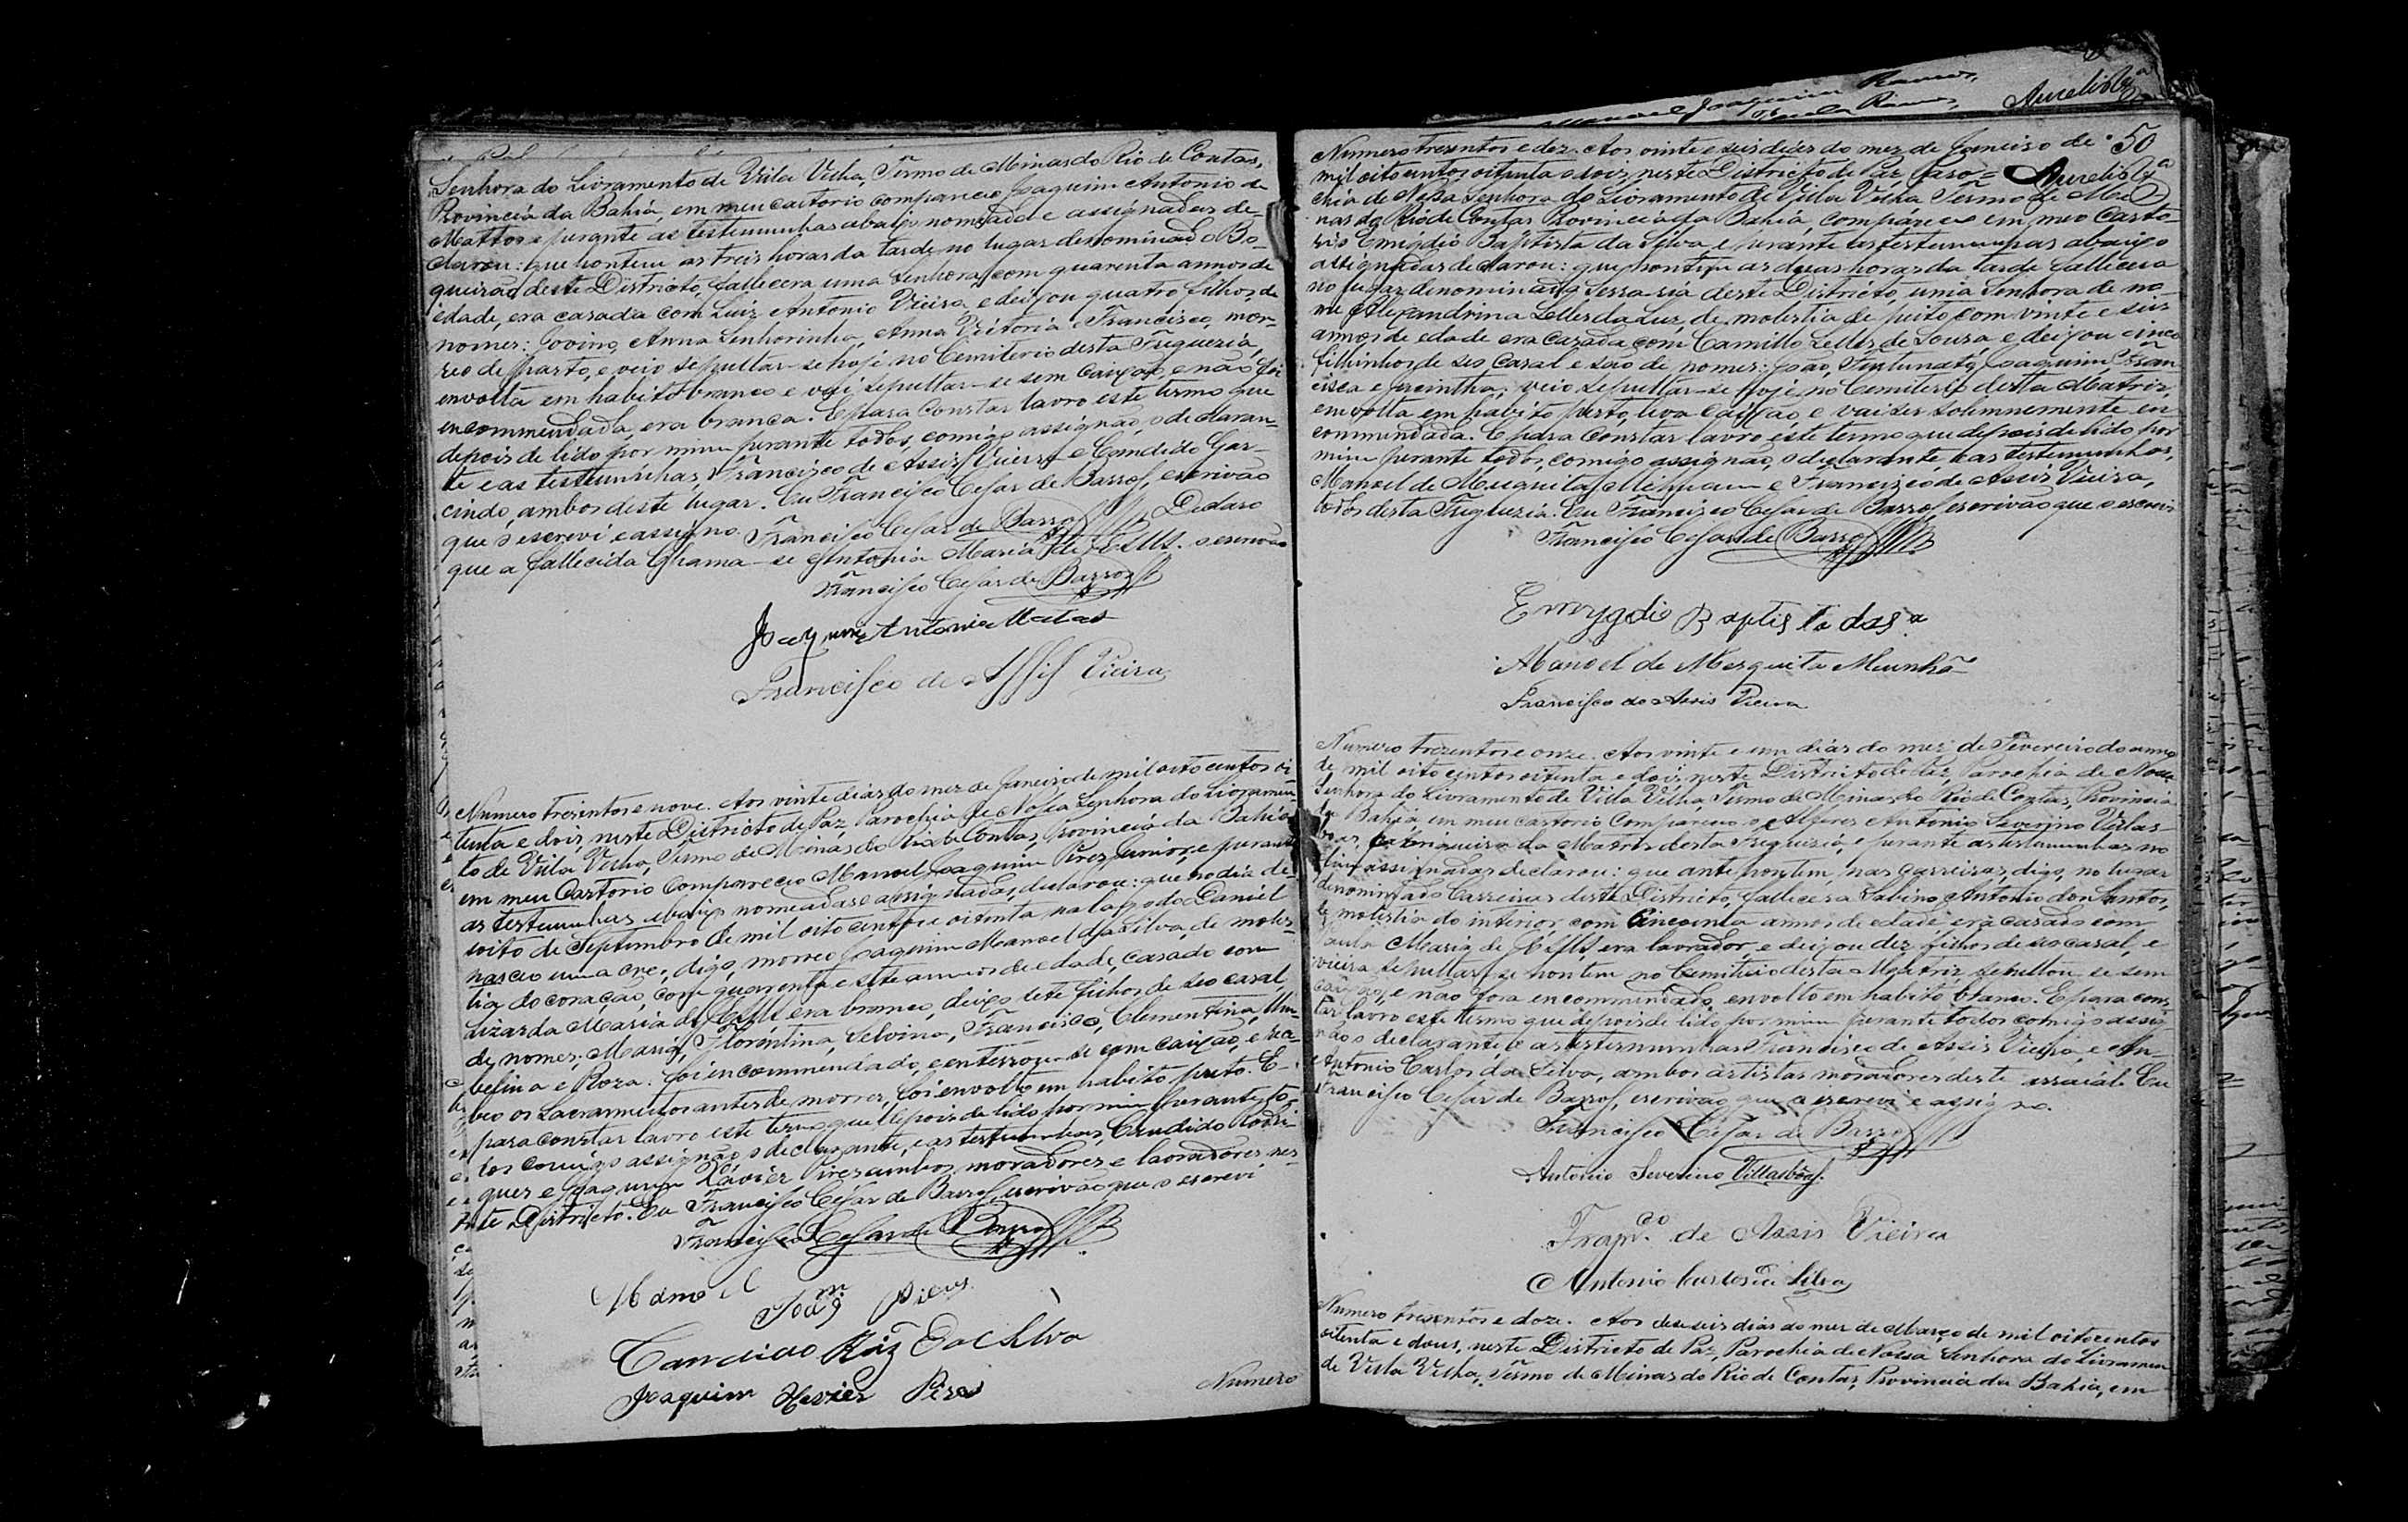 Senhora do Livramento de Villa Velha, Termo de Minas do Rio de Contas,
Provincia da Bahia, em meu cartorio compareceo Joaquim Antonio de
Mattos e perante as testemunhas abaixo nomeadas e assignadas de-
clarou: que hontem as treis horas da tarde no lugar denominado Bo-
queirão deste Districto, fallecera uma Senhora, com quarenta annos de
edade, era casada com Luiz Antonio Vieira, e deixou quatro filhos, de
nomes: Jovino, Anna Senhorinha, Anna Vitoria e Francisco, mor-
reo de parto, e veio sepultar-se hoje no Cemiterio desta Freguezia,
envolta em habito branco e vai sepultar-se sem caixão, e não foi
encommendada, era branca. E para constar lavro este termo que
depois de lido por mim perante todos, comigo assignão, o declaran-
te e as testemunhas, Francisco de Assis Vieira e Candido Gar-
cindo, ambos deste lugar. Eu Francisco Cesar de Barros, escrivão
que o escrevi e assigno. Francisco Cesar de Barros Declaro
que a fallecida chama-se Antonia Maria de Jesus. o escrivão
Francisco Cesar de Barros
Joaquim Antonio Matos
Francisco de Assis Vieira
Numero tresentos e nove. Aos vinte dias do mez de Janeiro de mil oito centos oi-
tenta e dois, neste Districto de Paz, Parochia de Nossa Senhora do Livramen-
to de Villa Velha, Termo de Minas do Rio de Contas, Provincia da Bahia
em meu Cartorio compareceo Manoel Joaquim Pires Junior, e perante
as testemunhas abaixo nomeadas e assignadas, declarou: que no dia de-
soito de Septembro de mil oito centos e oitenta na lagoa do Daniel
nasceo uma cre, digo, morreo Joaquim Manoel da Silva, de moles-
tia do coração, com quarenta e sete annos de edade, casado com
Lizarda Maria de Jesus era branco, deixo sete filhos de seo casal,
de nomes: Maria, Florentina, Selvina, Francisco, Clementina, Um-
belina e Roza. foi encommendado, e enterrou-se em caixão, e rece-
beo os Sacramentos antes de morrer, foi envolto em habito preto. E
para constar lavro este termo, que depois de lido por mim perante to-
dos comigo assignão o declarante, e as testemunhas, Candido Rodri-
gues e Joaquim Xavier Pires ambos moradores e lavradores nes-
te Districto. Eu Francisco Cesar de Barros, escrivão que o escrevi
Francisco Cesar de Barros
Manoel Joaqm Pires
Candido Roiz Da Silva
Joaquim Xavier Pires
Numero
50
Numero tresentos e dez. Aos vinte e seis dias do mez de Janeiro de
mil oito centos oitenta e dois, neste Districto de Paz, Paro-
chia de Nossa Senhora do Livramento de Villa Velha Termo de Mi-
nas do Rio de Contas Provincia da Bahia, compareceo em meo Carto-
rio Emigdio Baptista da Silva e perante as testemunhas abaixo
assignadas declarou: que hontem as duas horas da tarde fallecera
no lugar denominado Serraria deste Districto, uma Senhora de no-
me Alexandrina Telles da Luz, de molestia de peito com vinte e seis
annos de edade era casada com Camillo Telles de Souza, e deixou cinco
filhinhos de seo casal e são de nomes: João, Furtunato, Joaquim, Fran-
cisca e Jacintha; veio sepultar-se hoje no Cemiterio desta Matriz,
envolta em habito preto, leva caixão, e vai ser solemnemente en-
commendada. E para constar lavro este termo que depois de lido por
mim perante todos, comigo assignão, o declarante, e as testemunhas,
Manoel de Mesquita e Francisco de Assis Vieira,
todos desta Freguezia. Eu Francisco Cesar de Barros, escrivão que o escrevi
Francisco Cesar de Barros
Emygdio Baptista da Sa
Manoel de Mesquita
Francisco de Assis Vieira
Numero trezentos e onze. Aos vinte e um dias do mez de Fevereiro do anno
de mil oito centos oitenta e dois, neste Districto de Paz, Parochia de Nossa
Senhora do Livramento de Villa Velha, Termo de Minas do Rio de Contas, Provincia
da Bahia, em meu cartorio compareceo o Alferes Antonio Severino Villas-
boas, da Matriz desta Freguezia, e perante as testemunhas no
fim assignadas declarou: que antehontem, nas carreiras, digo, no lugar
denominado Carreiras deste Districto, fallecera Sabino Antonio dos Santos,
de molestia do interior, com cincoenta annos de edade, era casado com
Paula Maria de Jesus, era lavrador, e deixou dez filhos de seo casal, e
vieira sepultar-se hontem no Cemiterio desta Matriz, sepultou-se sem
caixão, e não fora encommendado, envolto em habito branco. E para cons-
tar lavro este termo que depois de lido por mim perante todos comigo assig-
não o declarante, e as testemunhas Francisco de Assis Vieira, e An-
Antonio Carlos da Silva, ambos artistas moradores deste arraial. Eu
Francisco Cesar de Barros, escrivão que o escrevi e assigno.
Francisco Cesar de Barros
Antonio Severino Villasbôas.
Franco. de Assis Vieira
Antonio Carlos da Silva
Numero tresentos e doze. Aos deseseis dias do mez de Março de mil oitocentos
oitenta e dous, neste Districto de Paz, Parochia de Nossa Senhora do Livramen
de Villa Velha, Termo de Minas do Rio de Contas, Provincia da Bahia, em